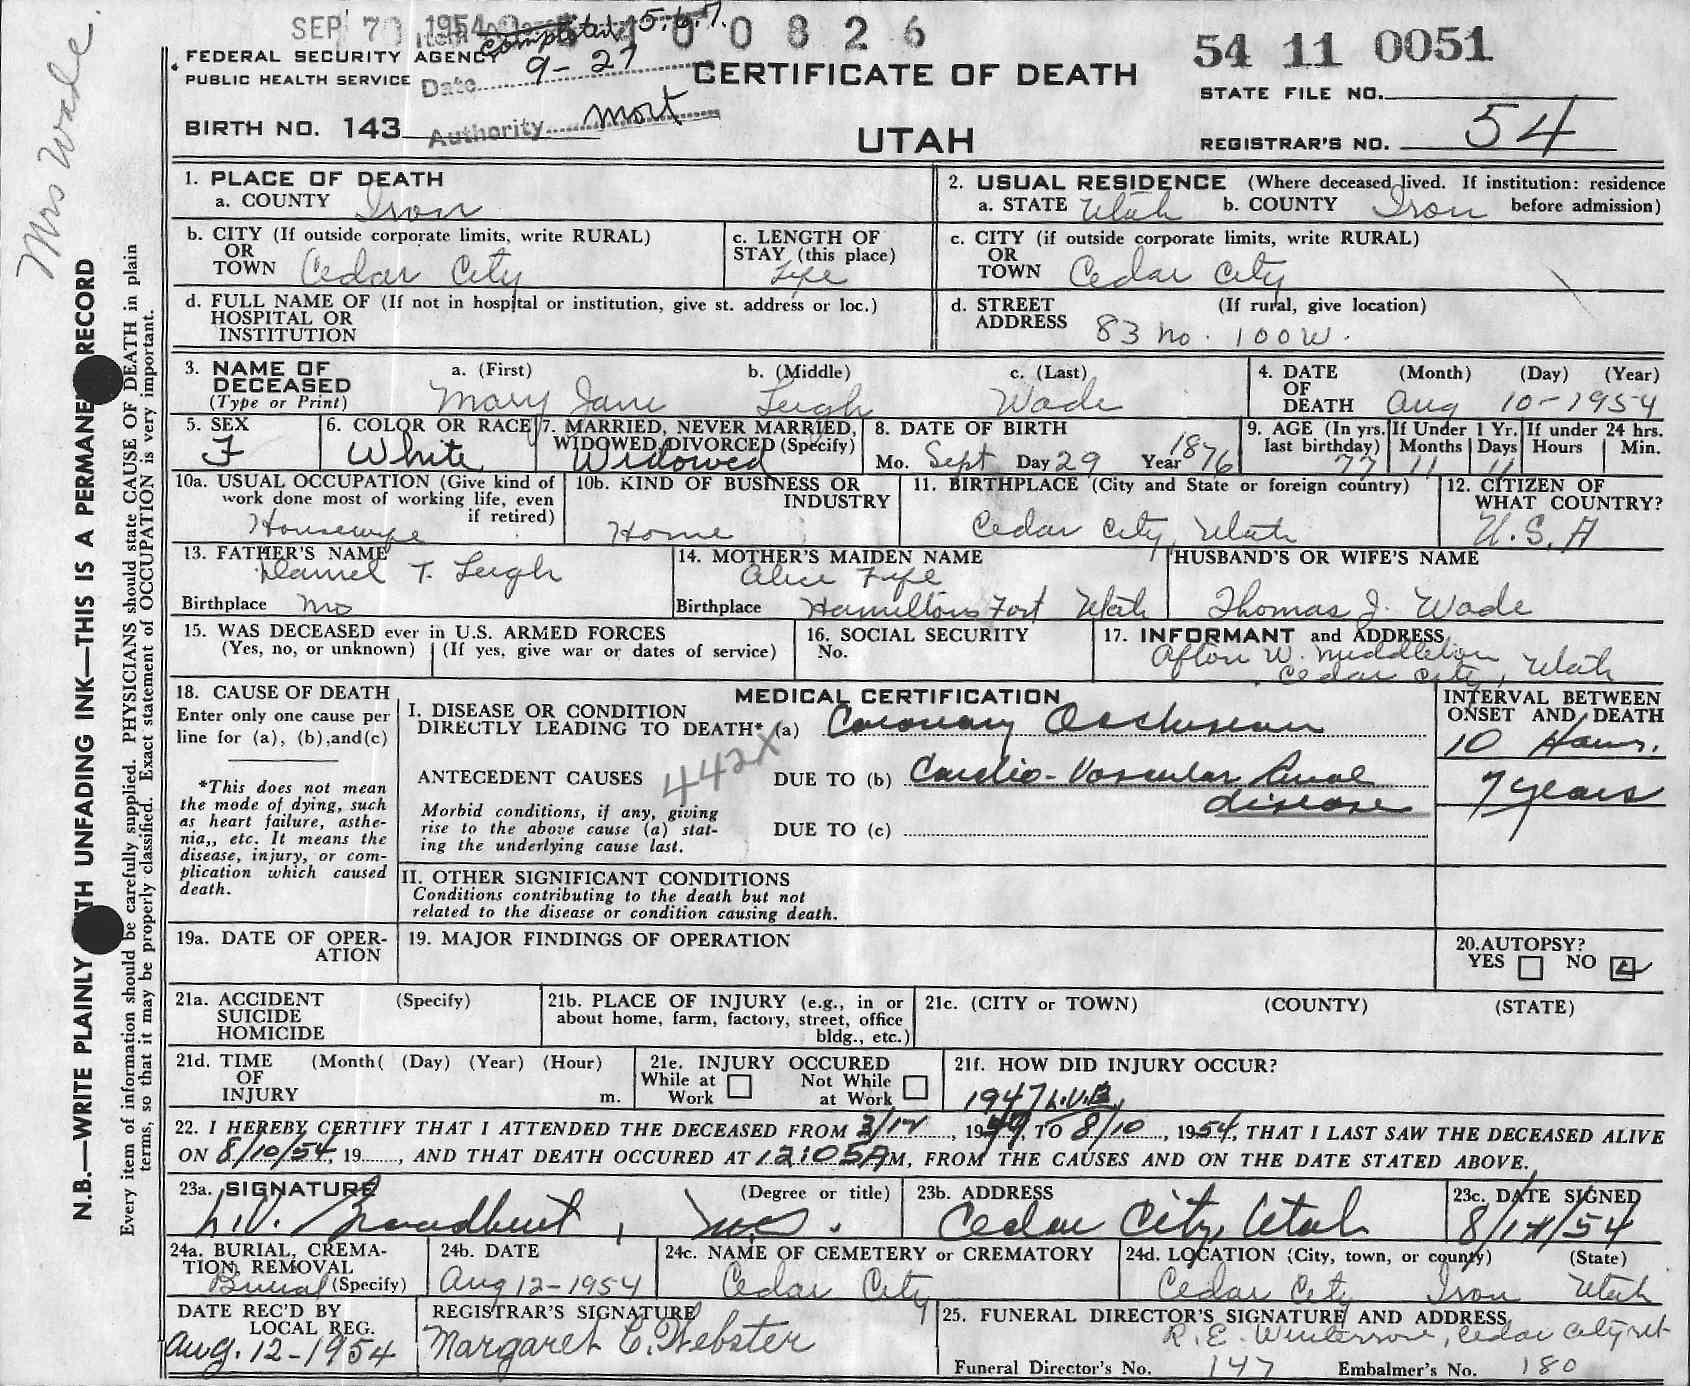 Mrs Wade.
N.B.—WRITE PLAINLY TH UNFADING INK—THIS IS A PERMANE RECORD
Every item of information should be carefully supplied. PHYSICIANS should state CAUSE OF DEATH in plain
terms, so that it may be properly classified. Exact statement of OCCUPATION is very important.
SEP 1954 0 8 2 6
Item completed 5.6.7.
54 11 0051
FEDERAL SECURITY AGENCY
PUBLIC HEALTH SERVICE
Date 9-27
CERTIFICATE OF DEATH
STATE FILE NO.
BIRTH NO. 143
Authority mort
UTAH
REGISTRAR'S NO. 54
1. PLACE OF DEATH
a. COUNTY Iron
2. USUAL RESIDENCE (Where deceased lived. If institution: residence
a. STATE Utah b. COUNTY Iron before admission)
b. CITY (If outside corporate limits, write RURAL)
OR
TOWN Cedar City
c. LENGTH OF
STAY (this place)
Life
c. CITY (if outside corporate limits, write RURAL)
OR
TOWN Cedar City
d. FULL NAME OF (If not in hospital or institution, give st. address or loc.)
HOSPITAL OR
INSTITUTION
d. STREET (If rural, give location)
ADDRESS 83 No. 100 W.
3. NAME OF a. (First) b. (Middle) c. (Last)
DECEASED
(Type or Print) Mary Jane Leigh Wade
4. DATE (Month) (Day) (Year)
OF
DEATH Aug 10-1954
5. SEX
F
6. COLOR OR RACE
White
7. MARRIED, NEVER MARRIED,
WIDOWED, DIVORCED (Specify)
Widowed
8. DATE OF BIRTH
Mo. Sept Day 29 Year 1876
9. AGE (In yrs. If Under 1 Yr. If under 24 hrs.
last birthday) Months Days Hours Min.
77 11 11
10a. USUAL OCCUPATION (Give kind of
work done most of working life, even
if retired)
Housewife
10b. KIND OF BUSINESS OR
INDUSTRY
Home
11. BIRTHPLACE (City and State or foreign country)
Cedar City, Utah
12. CITIZEN OF
WHAT COUNTRY?
U.S.A
13. FATHER'S NAME
Daniel T. Leigh
Birthplace Mo
14. MOTHER'S MAIDEN NAME
Alice Fife
Birthplace Hamiltons Fort Utah
HUSBAND'S OR WIFE'S NAME
Thomas J. Wade
15. WAS DECEASED ever in U.S. ARMED FORCES
(Yes, no, or unknown) (If yes, give war or dates of service)
16. SOCIAL SECURITY
No.
17. INFORMANT and ADDRESS
Afton W. Middleton
Cedar City, Utah
18. CAUSE OF DEATH
Enter only one cause per
line for (a), (b),and(c)
*This does not mean
the mode of dying, such
as heart failure, asthe-
nia,, etc. It means the
disease, injury, or com-
plication which caused
death.
MEDICAL CERTIFICATION
I. DISEASE OR CONDITION
DIRECTLY LEADING TO DEATH* (a) Coronary Occlusion
ANTECEDENT CAUSES 442X DUE TO (b) Cardio-Vascular Renal
disease
Morbid conditions, if any, giving
rise to the above cause (a) stat-
ing the underlying cause last.
DUE TO (c)
INTERVAL BETWEEN
ONSET AND DEATH
10 Hours.
7 years
II. OTHER SIGNIFICANT CONDITIONS
Conditions contributing to the death but not
related to the disease or condition causing death.
19a. DATE OF OPER-
ATION
19. MAJOR FINDINGS OF OPERATION
20.AUTOPSY?
YES NO
21a. ACCIDENT (Specify)
SUICIDE
HOMICIDE
21b. PLACE OF INJURY (e.g., in or
about home, farm, factory, street, office
bldg., etc.)
21c. (CITY or TOWN) (COUNTY) (STATE)
21d. TIME (Month( (Day) (Year) (Hour)
OF
INJURY m.
21e. INJURY OCCURED
While at Not While
Work at Work
21f. HOW DID INJURY OCCUR?
1947 L.V.B.
22. I HEREBY CERTIFY THAT I ATTENDED THE DECEASED FROM 3/17, 1947, TO 8/10, 1954, THAT I LAST SAW THE DECEASED ALIVE
ON 8/10/54, 19, AND THAT DEATH OCCURED AT 12:05AM, FROM THE CAUSES AND ON THE DATE STATED ABOVE.
23a. SIGNATURE (Degree or title)
L.V. Broadbent, M.D.
23b. ADDRESS
Cedar City, Utah
23c. DATE SIGNED
24a. BURIAL, CREMA-
TION, REMOVAL
Burial (Specify)
24b. DATE
Aug 12-1954
24c. NAME OF CEMETERY or CREMATORY
Cedar City
24d. LOCATION (City, town, or county) (State)
Cedar City Iron Utah
DATE REC'D BY
LOCAL REG.
Aug. 12-1954
REGISTRAR'S SIGNATURE
Margaret C. Webster
25. FUNERAL DIRECTOR'S SIGNATURE AND ADDRESS
R. E. Cedar City Ut
Funeral Director's No. 147 Embalmer's No. 180